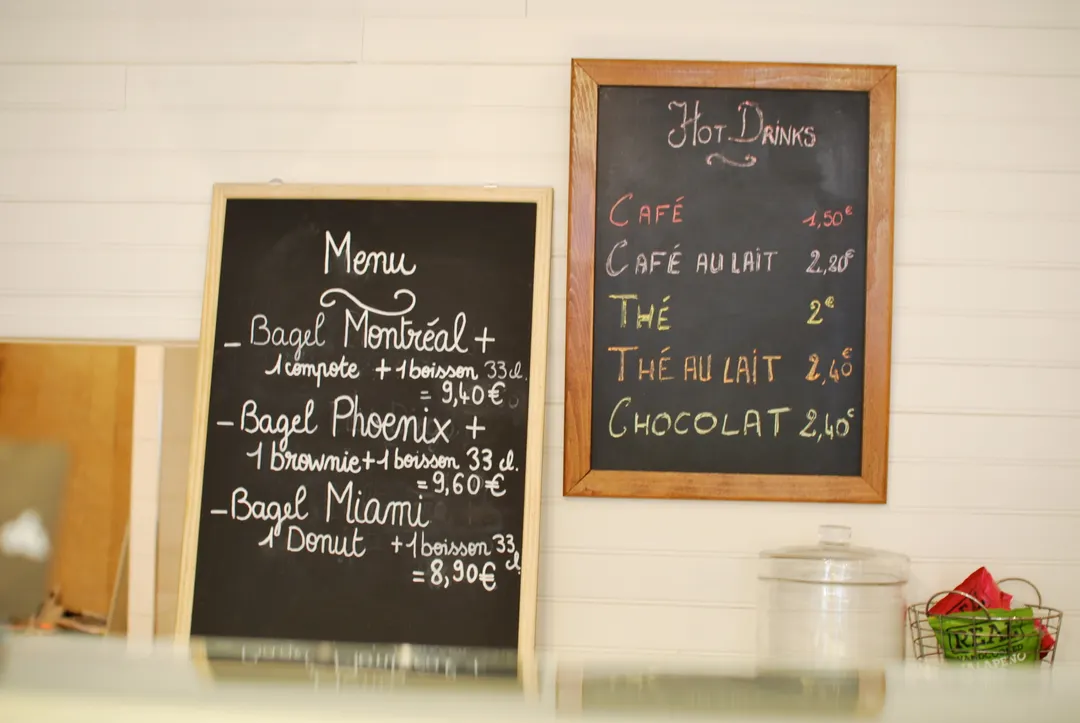 Menu
_ Bagel Montréal +
1 compote + 1 boisson 33 cl.
= 9,40 €
- Bagel Phoenix +
1 brownie + 1 boisson 33 cl.
= 9,60 €
- Bagel Miami
1 Donut + 1 boisson 33 cl
= 8,90 €
HOT DRINKS
CAFÉ 1,50 €
CAFÉ AU LAIT 2,20 €
THÉ 2 €
THÉ AU LAIT 2,40 €
CHOCOLAT 2,40 €
REAL
JALAPENO